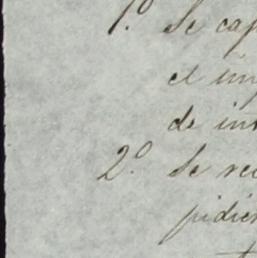 1.º Se cap
el im
de in
2.º Se re
pidie